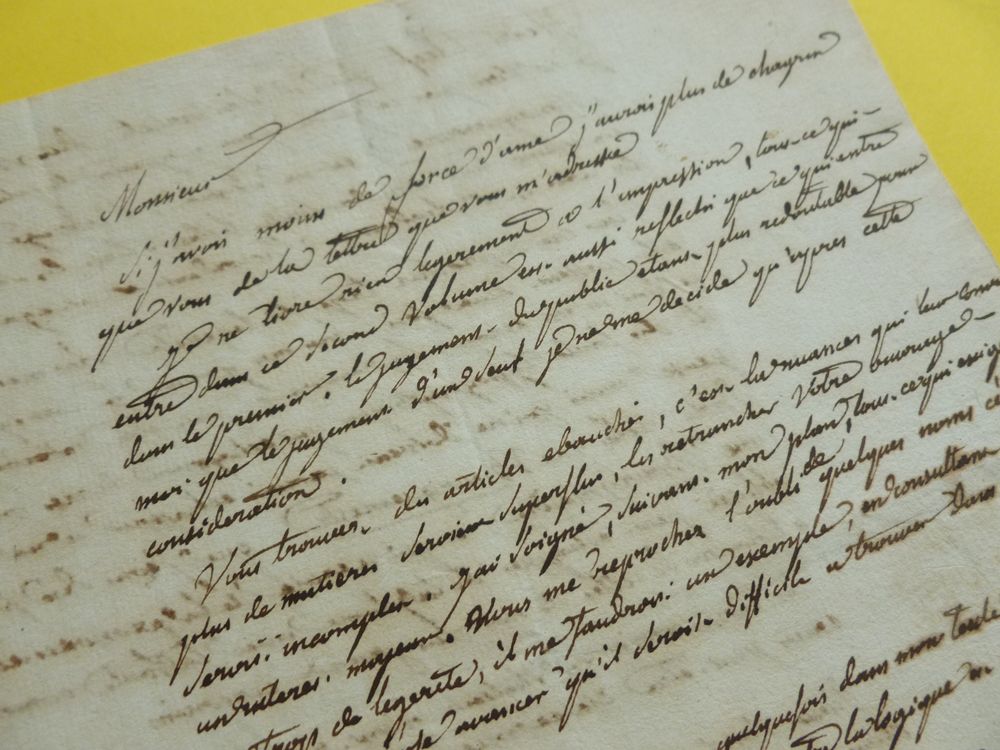 Monsieur
Si j'avois moins de force d'ame j'aurois plus de chagrin
que vous de la lettre que vous m'adressée
je ne livre rien legerement a l'impression, tous ce qui
entre dans ce second volume est aussi reflechi que ce qui entre
dans le premier. le jugement du public etant plus redoutable pour
moi que le jugement d'un seul je ne me decide qu'apres cette
consideration.
Vous trouvez des articles ebauchés, c'est la nuances qui leur
plus de matieres seroient superflus, les retrancher votre ouvrage
serois incomplet. j'ai soigné, suivant mon plan, tous ce qui exige
un interet majeur. Vous me reprochez l'oubli de quelques noms
trop de legereté, il me faudroit un exemple, en consultant
avancer qu'il serois difficile a trouver dans
quelquefois dans mon
la logique